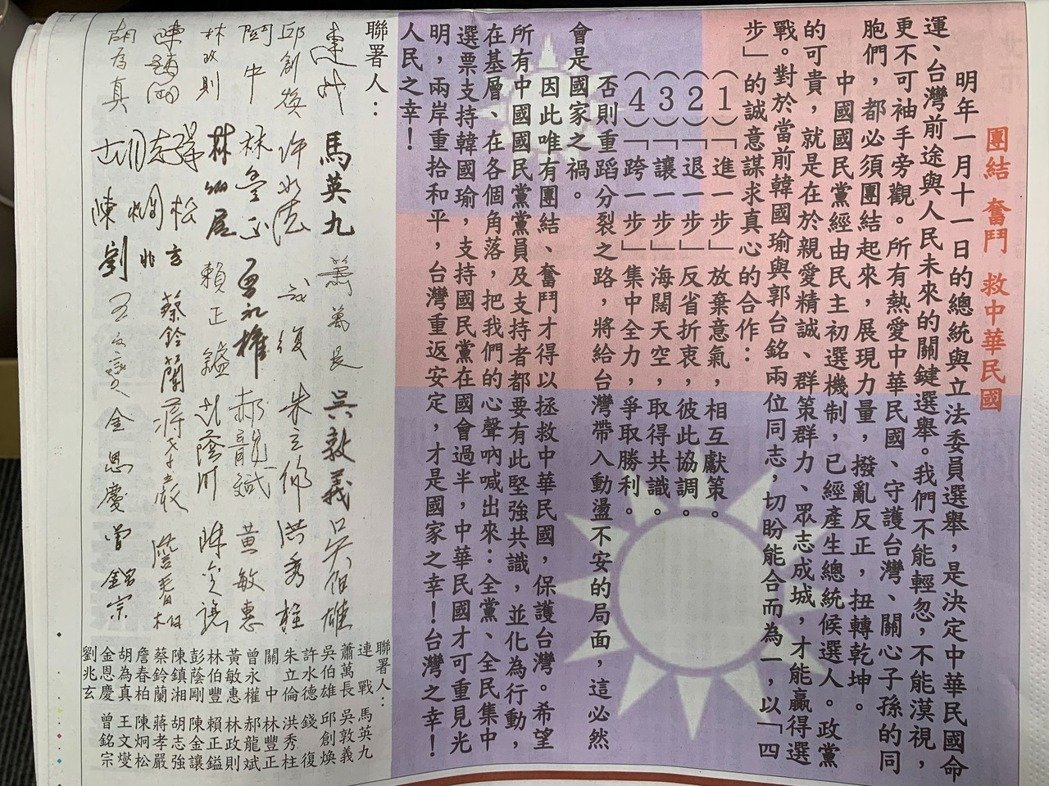 團結 奮鬥 救中華民國
明年一月十一日的總統與立法委員選舉，是決定中華民國命
運、台灣前途與人民未來的關鍵選舉。我們不能輕忽，不能漠視，
更不可袖手旁觀。所有熱愛中華民國、守護台灣、關心子孫的同
胞們，都必須團結起來，展現力量，撥亂反正，扭轉乾坤。
中國國民黨經由民主初選機制，已經產生總統候選人。政黨
的可貴，就是在於親愛精誠、群策群力、眾志成城，才能贏得選
戰。對於當前韓國瑜與郭台銘兩位同志，切盼能合而為一，以「四
步」的誠意謀求真心的合作：
（1）「進一步」放棄意氣，相互獻策。
（2）「退一步」反省折衷，彼此協調。
（3）「讓一步」海闊天空，取得共識。
（4）「跨一步」集中全力，爭取勝利。
否則重蹈分裂之路，將給台灣帶入動盪不安的局面，這必然
會是國家之禍。
因此唯有團結、奮鬥才得以拯救中華民國，保護台灣。希望
所有中國國民黨黨員及支持者都要有此堅強共識，並化為行動，
在基層、在各個角落，把我們的心聲吶喊出來：全黨、全民集中
選票支持韓國瑜，支持國民黨在國會過半，中華民國才可重見光
明，兩岸重拾和平，台灣重返安定，才是國家之幸！台灣之幸！
人民之幸！
聯署人：
連戰 馬英九 蕭萬長 吳敦義 吳伯雄
邱創煥 許水德 錢復 朱立倫 洪秀柱
關中 林豐正 曾永權 郝龍斌 黃敏惠
林政則 林伯豐 賴正鎰 彭蔭剛 陳金讓
陳鎮湘 胡志強 蔡鈴蘭 蔣孝嚴 詹春柏
胡為真 陳炯松 劉兆玄 王文燮 金恩慶 曾銘宗
聯署人：
連 戰 馬英九
蕭萬長 吳敦義
吳伯雄 邱創煥
許水德 錢 復
朱立倫 洪秀柱
關 中 林豐正
曾永權 郝龍斌
黃敏惠 林政則
林伯豐 賴正鎰
彭蔭剛 陳金讓
陳鎮湘 胡志強
蔡鈴蘭 蔣孝嚴
詹春柏 陳炯松
胡為真 王文燮
金恩慶 曾銘宗
劉兆玄